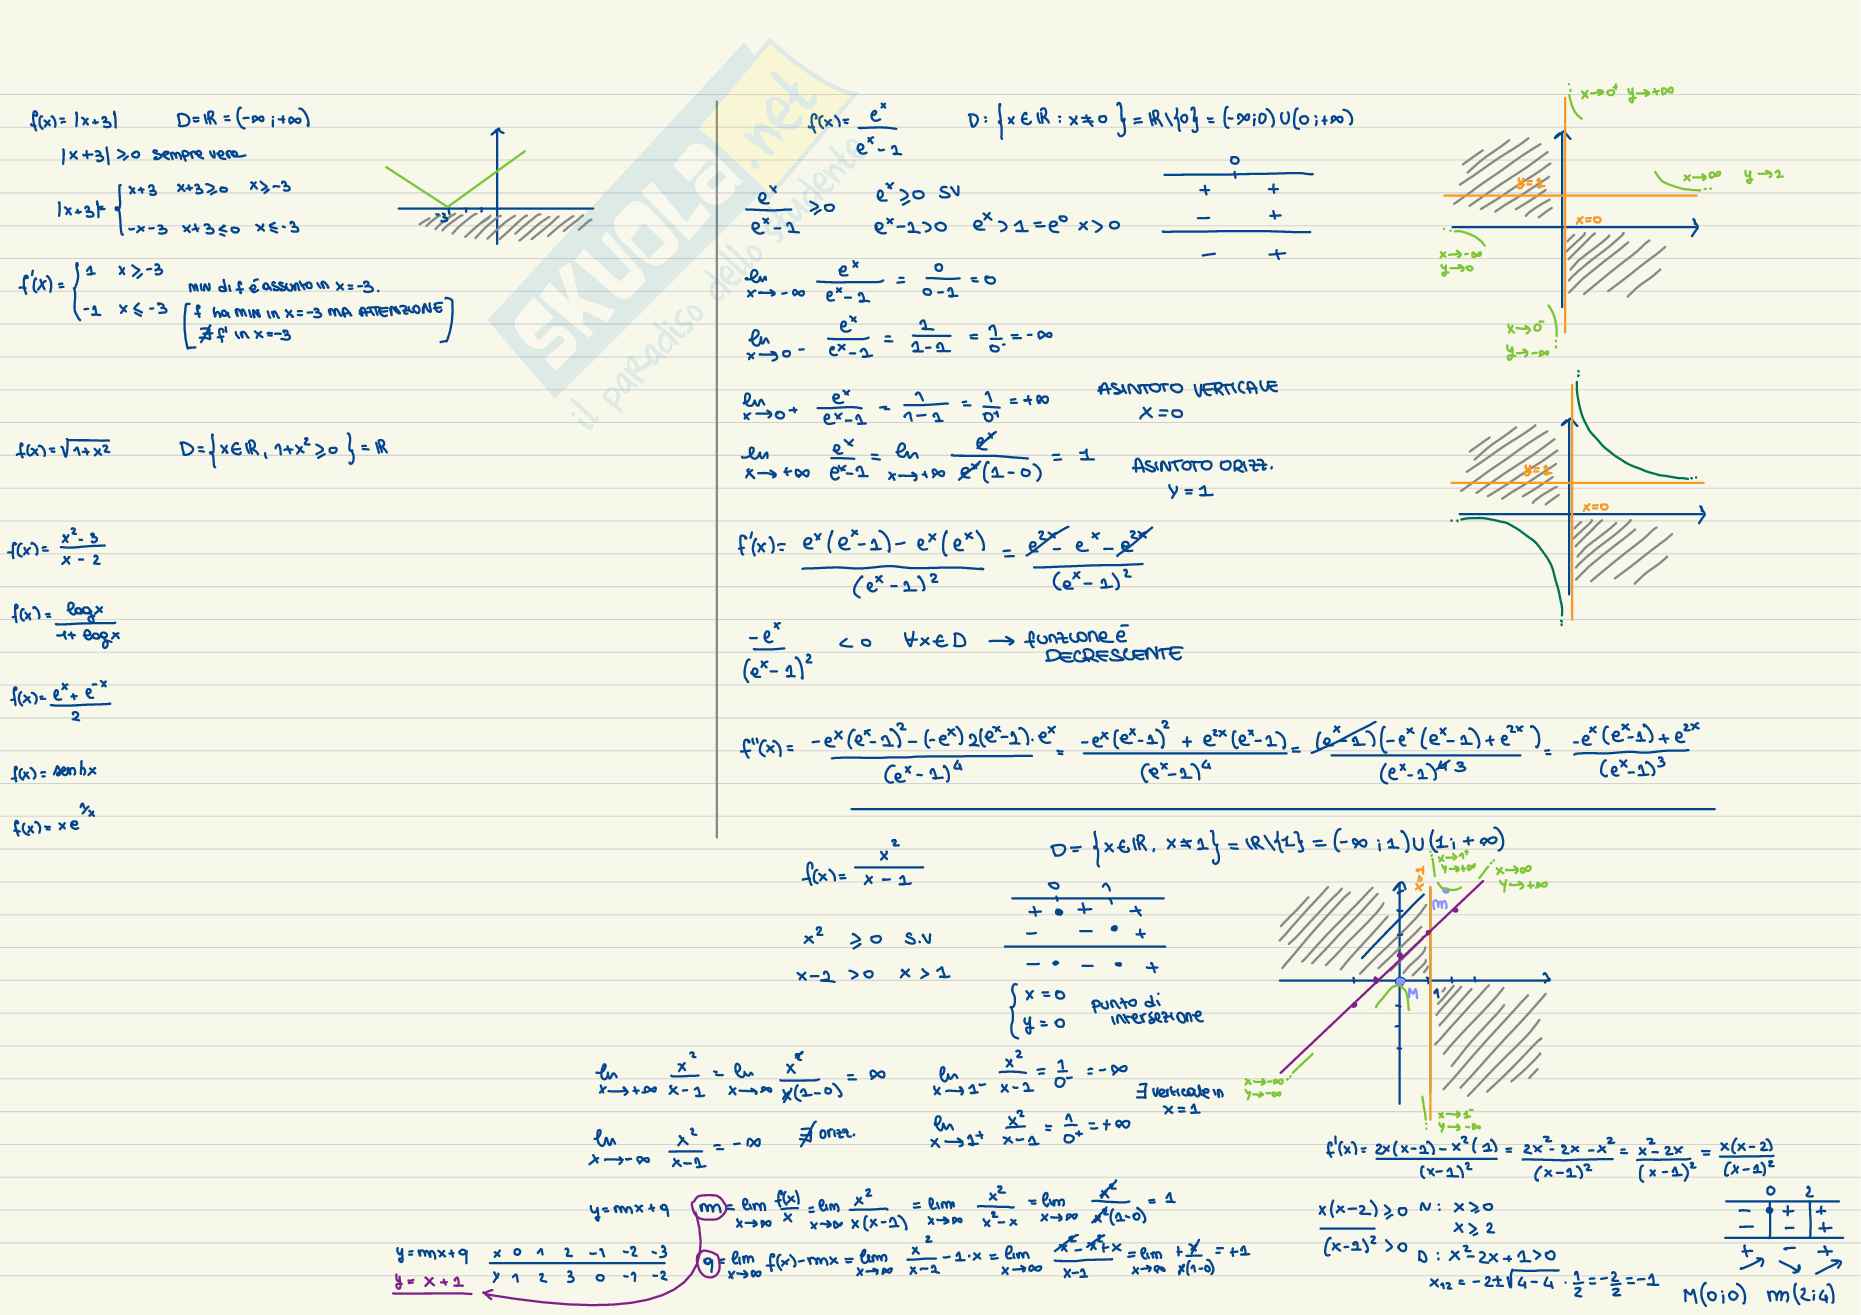 f(x) = |x+3|    D = ℝ = (-∞; +∞)
|x+3| ≥ 0 sempre vera
|x+3| = { x+3   x+3 ≥ 0   x ≥ -3
-x-3   x+3 ≤ 0   x ≤ -3
-3
f'(x) = { 1   x ≥ -3
-1   x ≤ -3
min di f è assunto in x = -3.
[f ha min in x = -3 MA ATTENZIONE
∄ f' in x = -3]
f(x) = √(1+x²)    D = {x ∈ ℝ, 1+x² ≥ 0} = ℝ
f(x) = (x²-3)/(x-2)
f(x) = log x/(1+log x)
f(x) = (e^x + e^-x)/2
f(x) = senhx
f(x) = x e^(1/x)
SKUOLA.net
il paradiso dello studente
f(x) = e^x/(e^x-1)    D: {x ∈ ℝ : x ≠ 0} = ℝ\{0} = (-∞;0) ∪ (0;+∞)
e^x/(e^x-1) ≥ 0    e^x ≥ 0 SV
e^x-1 > 0   e^x > 1 = e^0   x > 0
0
+ +
- +
- +
lim x→-∞ e^x/(e^x-1) = 0/(0-1) = 0
lim x→0- e^x/(e^x-1) = 1/(1-1) = 1/0- = -∞
lim x→0+ e^x/(e^x-1) = 1/(1-1) = 1/0+ = +∞    ASINTOTO VERTICALE
x = 0
lim x→+∞ e^x/(e^x-1) = lim x→+∞ e^x/(e^x(1-0)) = 1    ASINTOTO ORIZZ.
y = 1
f'(x) = (e^x(e^x-1) - e^x(e^x))/(e^x-1)² = (e^2x - e^x - e^2x)/(e^x-1)²
-e^x/(e^x-1)² < 0   ∀x ∈ D → funzione è
DECRESCENTE
f''(x) = (-e^x(e^x-1)² - (-e^x)2(e^x-1)·e^x)/(e^x-1)^4 = (-e^x(e^x-1)² + e^2x(e^x-1))/(e^x-1)^4 = ((e^x-1)(-e^x(e^x-1)+e^2x))/(e^x-1)^4 3 = (-e^x(e^x-1)+e^2x)/(e^x-1)³
x→0+ y→+∞
y=1
x→∞ y→1
x=0
x→-∞
y→0
x→0-
y→-∞
y=1
x=0
f(x) = x²/(x-1)    D = {x ∈ ℝ, x ≠ 1} = ℝ\{1} = (-∞;1) ∪ (1;+∞)
x² ≥ 0 S.V
x-1 > 0   x > 1
0 1
+ • + +
- - • +
- • - • +
{ x = 0
y = 0
punto di
intersezione
x=1
x→1+
y→+∞
x→∞
y→+∞
m
M
1
x→-∞
y→-∞
x→1-
y→-∞
lim x→+∞ x²/(x-1) = lim x→∞ x²/(x(1-0)) = ∞
lim x→1- x²/(x-1) = 1/0- = -∞
∃ verticale in
x = 1
lim x→-∞ x²/(x-1) = -∞   ∄ orizz.
lim x→1+ x²/(x-1) = 1/0+ = +∞
y = mx+q   m = lim x→∞ f(x)/x = lim x→∞ x²/(x(x-1)) = lim x→∞ x²/(x²-x) = lim x→∞ x²/(x²(1-0)) = 1
q = lim x→∞ f(x)-mx = lim x→∞ x²/(x-1) - 1·x = lim x→∞ (x²-x²+x)/(x-1) = lim x→∞ +x/(x(1-0)) = +1
y = mx+q   x 0 1 2 -1 -2 -3
y = x+1   y 1 2 3 0 -1 -2
f'(x) = (2x(x-1) - x²(1))/(x-1)² = (2x²-2x-x²)/(x-1)² = (x²-2x)/(x-1)² = x(x-2)/(x-1)²
x(x-2) ≥ 0   N: x ≥ 0
x ≥ 2
(x-1)² > 0   D: x²-2x+1 > 0
x12 = -2±√(4-4) · 1/2 = -2/2 = -1
0 2
- + +
- - +
+ - +
M(0;0)   m(2;4)